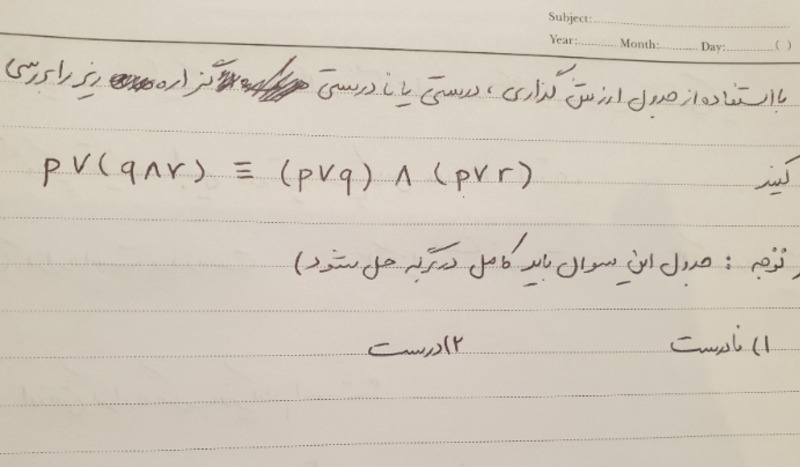 Subject:
Year: Month: Day: ( )
با استفاده از جدول ارزش گذاری ، درستی یا نادرستی گزاره زیر را بررسی
کنید p ∨ (q ∧ r) ≡ (p ∨ q) ∧ (p ∨ r)
توجه : جدول این سوال باید کامل در برگه حل شود)
۱) نادرست ۲) درست